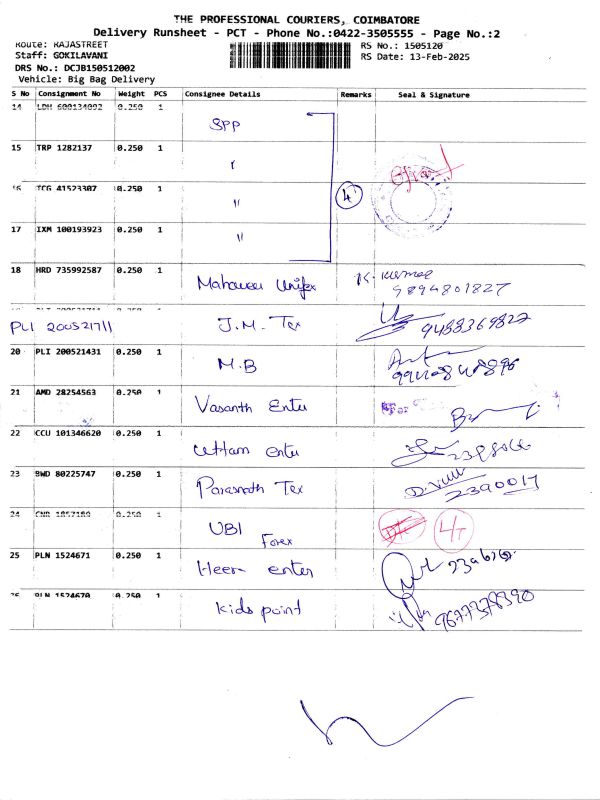 THE PROFESSIONAL COURIERS, COIMBATORE
Delivery Runsheet - PCT - Phone No.:0422-3505555 - Page No.:2
Route: RAJASTREET
RS No.: 1505120
Staff: GOKILAVANI
RS Date: 13-Feb-2025
DRS No.: DCJB150512002
Vehicle: Big Bag Delivery
S No Consignment No Weight PCS Consignee Details Remarks Seal & Signature
14 LDH 600134092 0.250 1 SPP
15 TRP 1282137 0.250 1 "
16 TCG 41523307 0.250 1 " 4
17 IXM 100193923 0.250 1 "
18 HRD 735992587 0.250 1 Unifex K. Kumar 9894801827
PLI 200521711 J.M. Tex 9488369827
20 PLI 200521431 0.250 1 M.B
21 AMD 28254563 0.250 1 Vasanth Enter For
22 CCU 101346620 0.250 1 Uttam enter
23 BWD 80225747 0.250 1 Parasnath Tex 2390017
24 CNR 1057180 0.250 1 UBI Forex 4/T
25 PLN 1524671 0.250 1 Heer enter
26 PLN 1524670 0.250 1 Kids point 9677378390